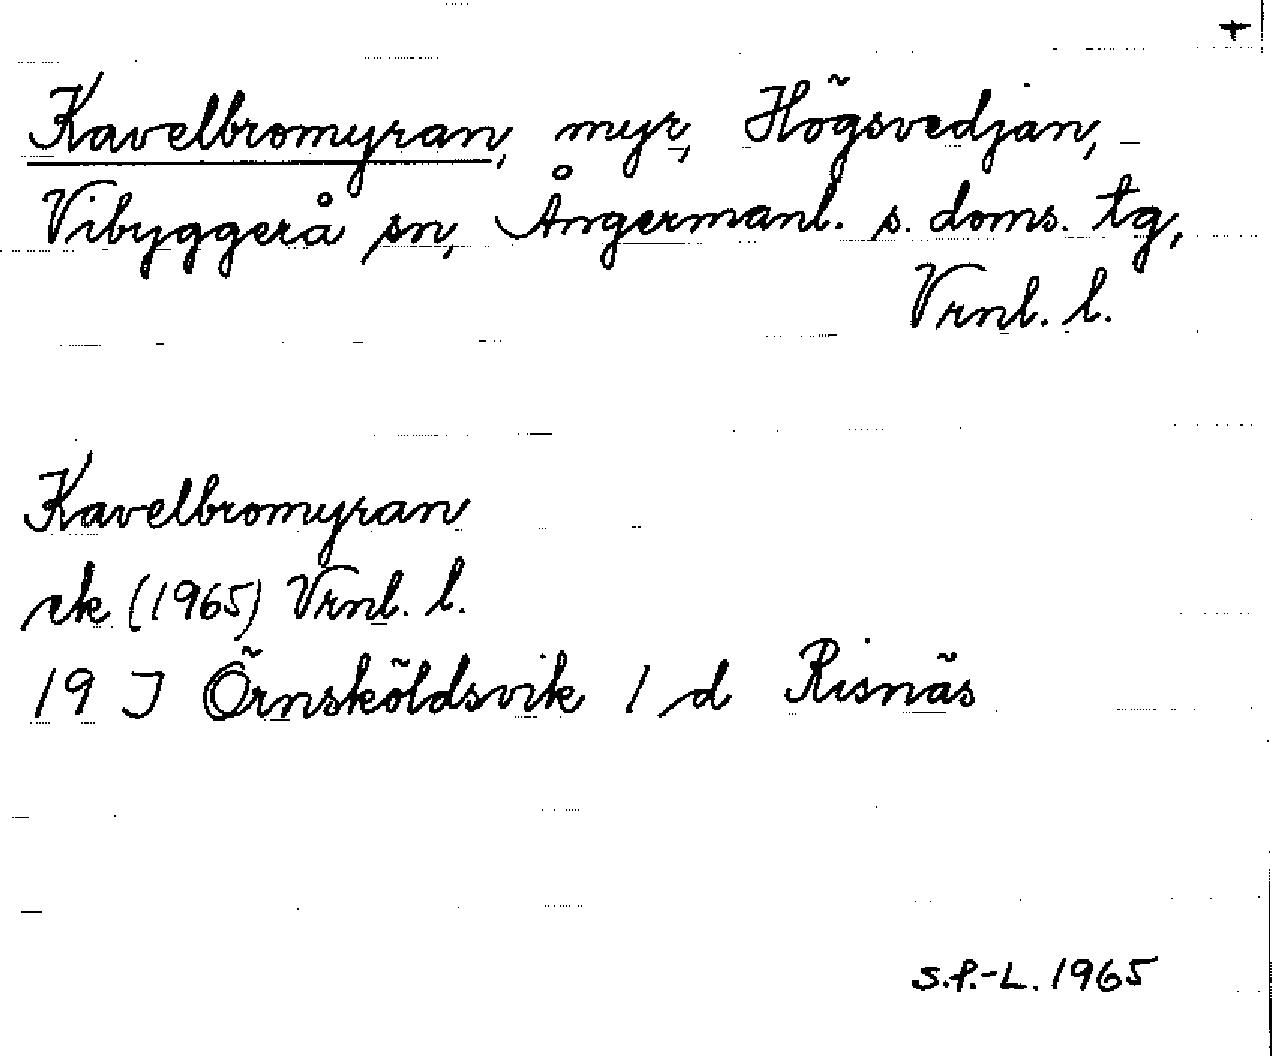 +
Kavelbromyran, myr, Högsvedjan,
Vibyggerå sn, Ångermanl. s. doms. tg,
Vrnl. l.
Kavelbromyran
ek (1965) Vrnl. l.
19 J Örnsköldsvik 1 d Risnäs
S.P.-L. 1965